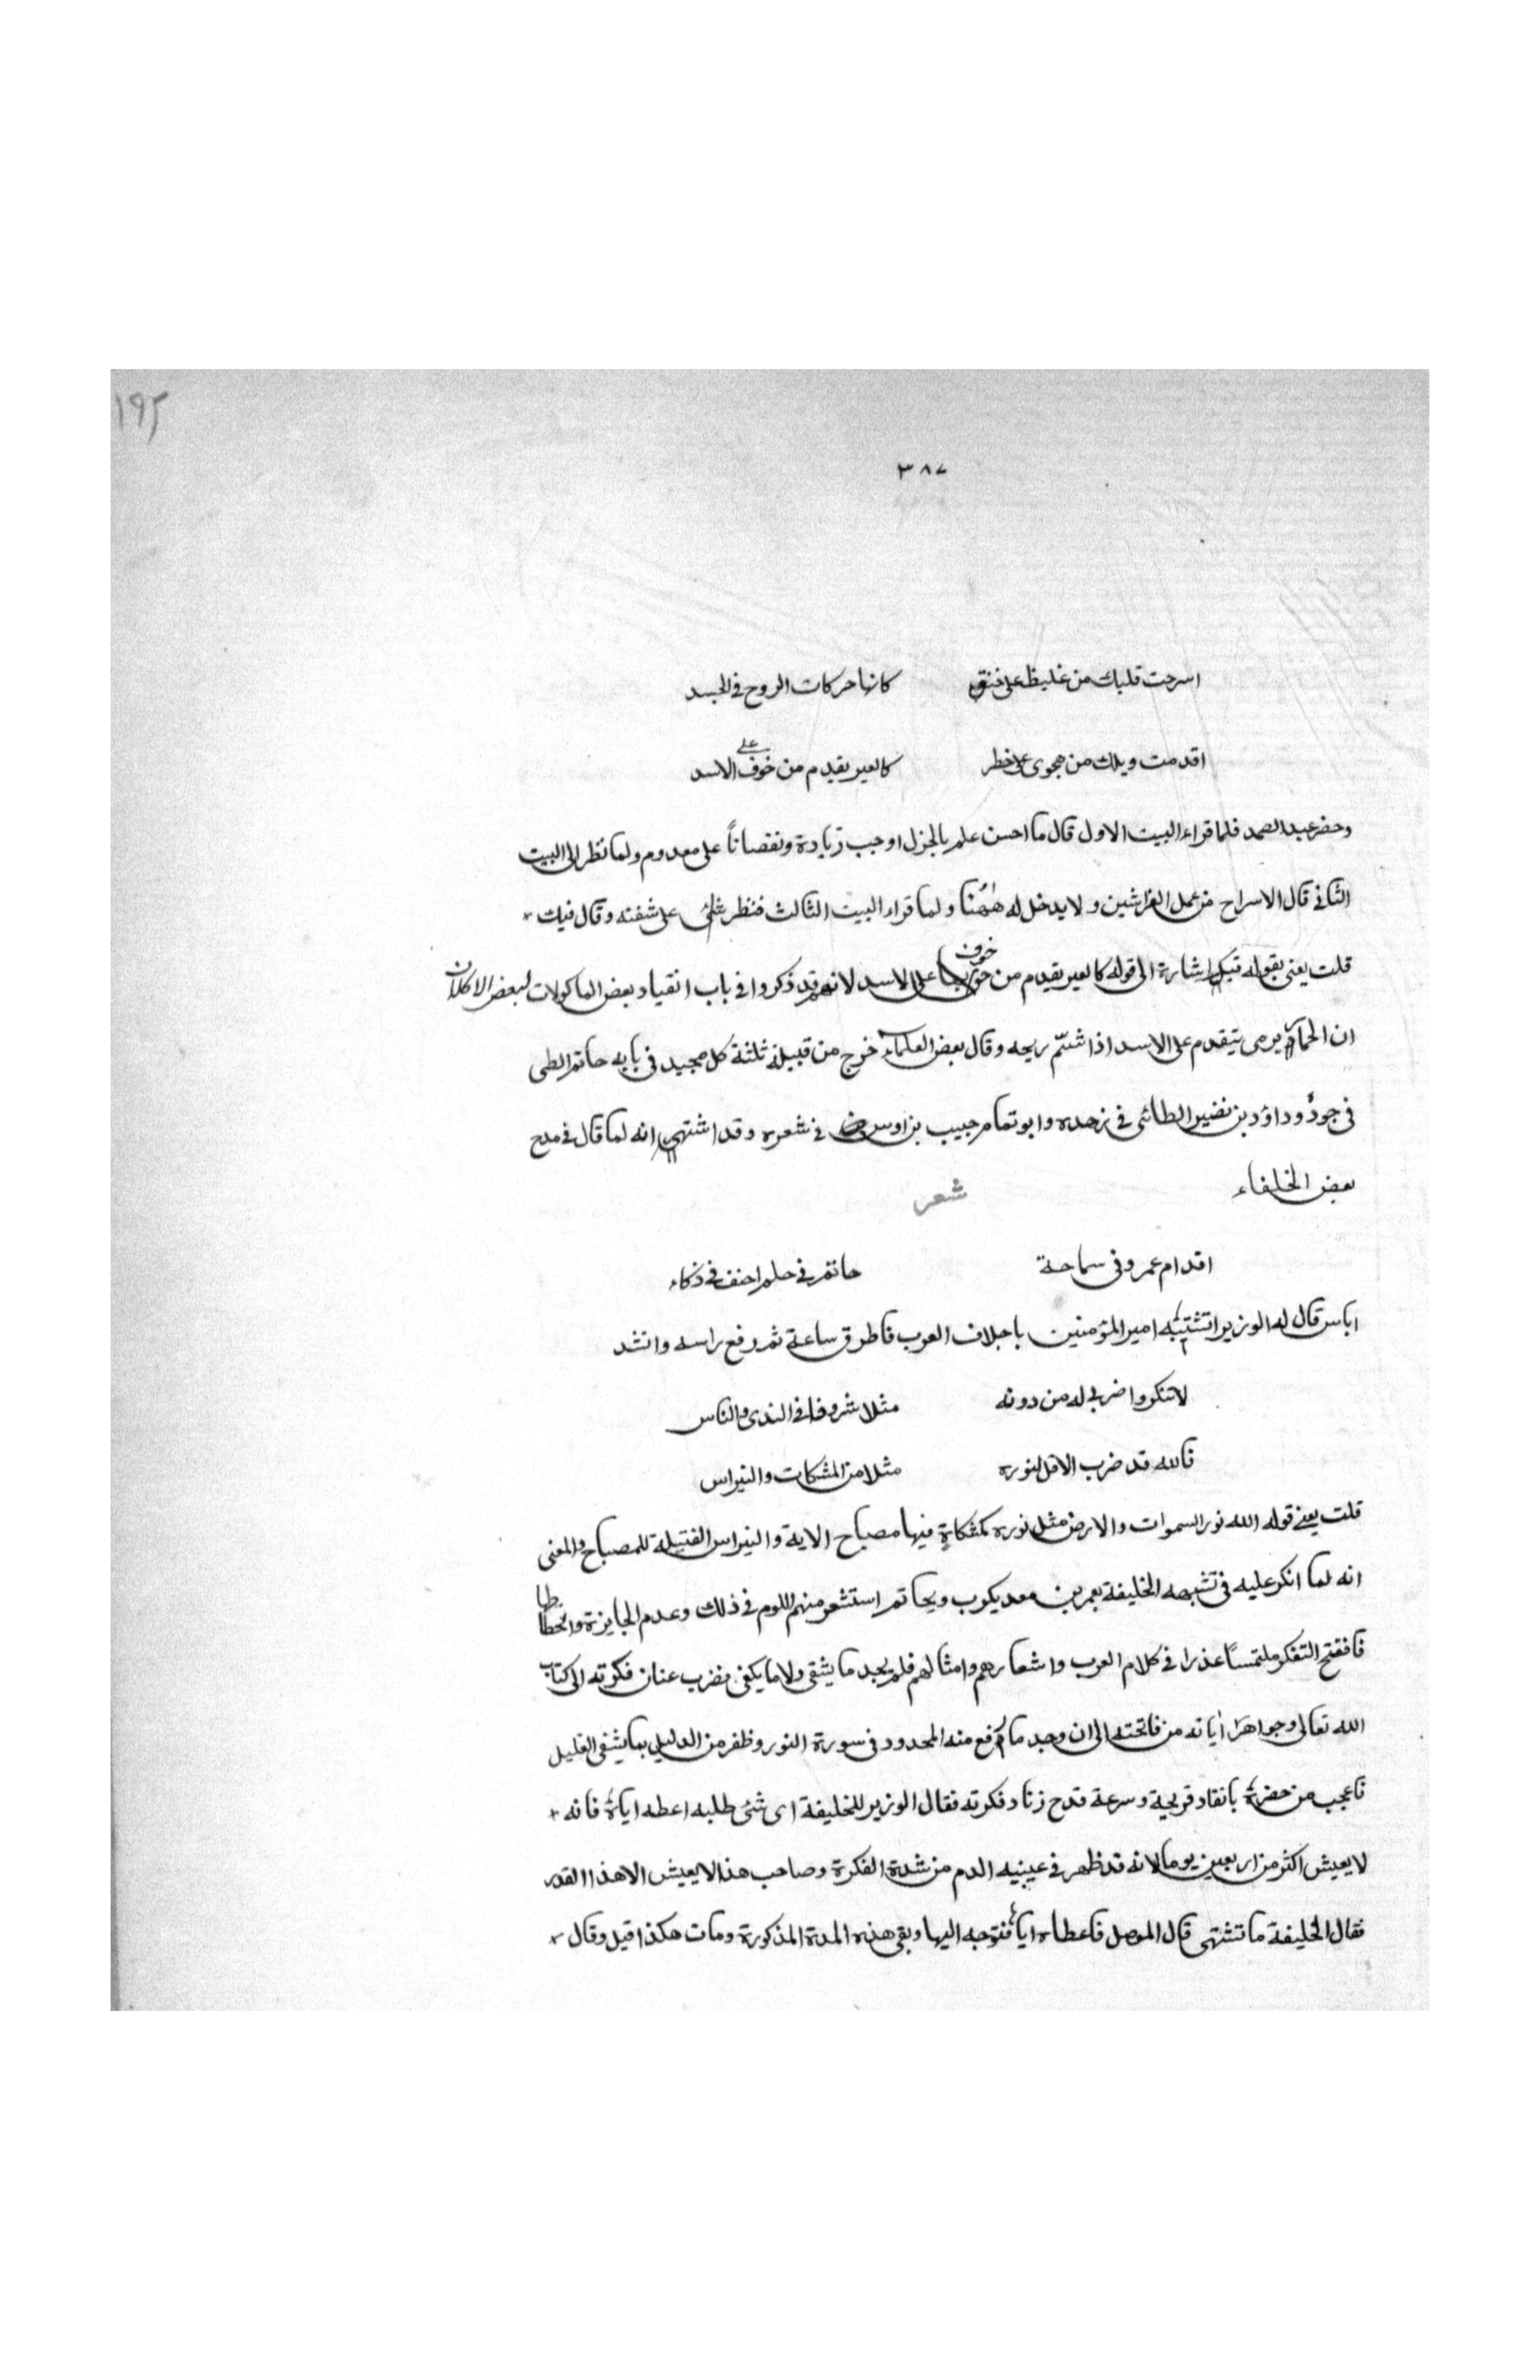 ١٩٢
٣٨٧
اسرجت قلبك من غليظ على خنق كانها حركات الروح فى الجسد
اقدمت ويلك من هجوى على خطر كالعير يقدم من خوف على الاسد
وحضر عبد الصمد فلما قراء البيت الاول قال ما احسن علمه بالجزل اوجب زيادة ونقصاناً على معدوم ولما نظر الى البيت
الثانى قال الاسراج من عمل الفراشين ولا يدخل له هٰهُنا ولما قراء البيت الثالث فنظر على شفته وقال فيك
قلت يعنى بقوله اشارة الى قوله كالعير يقدم من خوف على الاسد لانهم قد ذكروا فى باب انقياد بعض الماكولات لبعض الاكلان
ان الحمار يرمى يتقدم على الاسد اذا شتّم ريحه وقال بعض العلماء خرج من قبيلة ثلثة كل مجيد فى بابه حاتم الطى
فى جوده وداؤد بن نضير الطائى فى زهده وابو تمام حبيب بن اوس فى شعره وقد اشتهر انه لما قال فى مدح
بعض الخلفاء شعر
اقدام عمرو فى سماحة حاتم فى حلم احنف فى ذكاء
اياس قال له الوزير اتشبه امير المؤمنين باجلاف العرب فاطرق ساعة ثم رفع راسه وانشد
لا تنكروا ضربى له من دونه مثلا شروفا فى الندى والناس
فالله قد ضرب الاقل لنوره مثلا من المشكات والنبراس
قلت يعنى قوله الله نور السموات والارض مثل نوره كمشكاةٍ فيها مصباح الاية والنبراس الفتيلة للمصباح والمعنى
انه لما انكر عليه فى تشبهه الخليفة بعمر بن معديكرب وبحاتم استشعر منهم اللوم فى ذلك وعدم الجايزة وانحطاطا
فافتح التفكر ملتمساً عذرا فى كلام العرب واشعارهم وامثالهم فلم يجد ما يشفى ولا ما يكفى فضرب عنان فكرته الى كتاب
الله تعالى وجواهر اٰياته من فاتحته الى ان وجد ما رفع منه المحدود فى سورة النور وظفر من الدليل بما يشفى الغليل
فاعجب من حضره بانقاد قريحة وسرعة قدح زناد فكرته فقال الوزير للخليفة اى شئ طلبه اعطه اياه فانه
لا يعيش اكثر من اربعين يوما لانه قد ظهر فى عينيه الدم من شدة الفكرة وصاحب هذا لا يعيش الا هذا القدر
فقال الخليفة ما تشتهى قال الموصل فاعطاه اياه فتوجه اليها وبقى هذه المدة المذكورة ومات هكذا قيل وقال